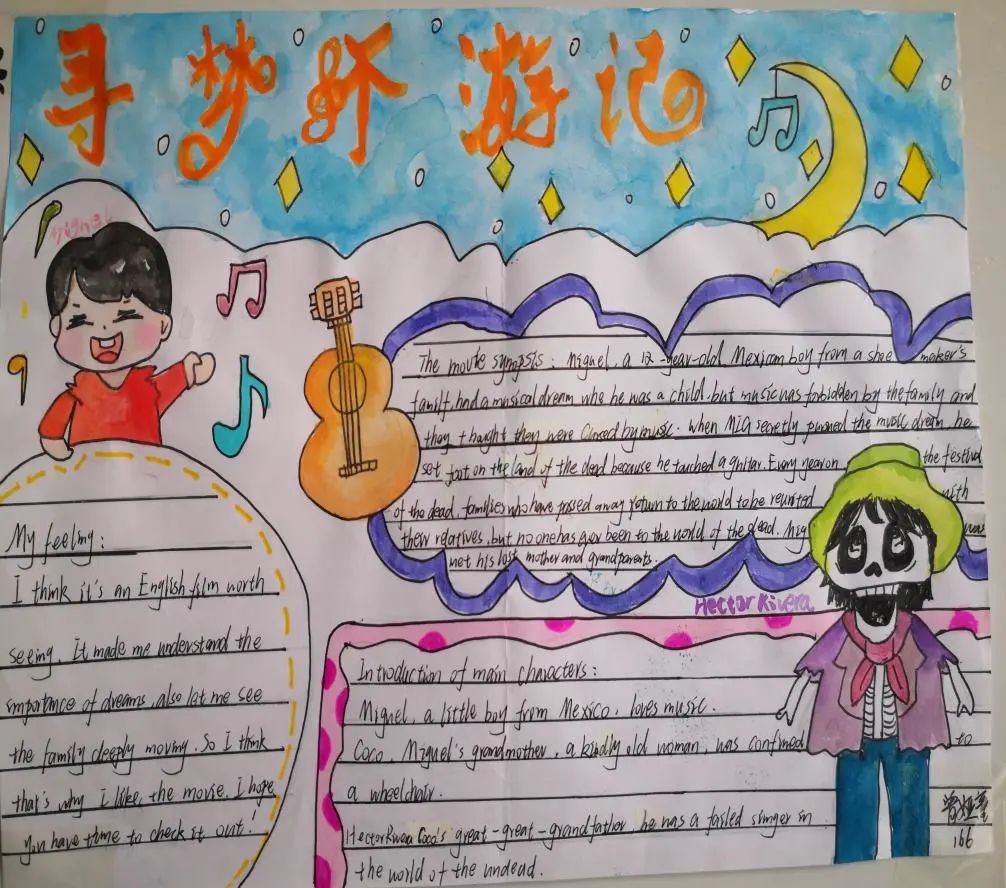 寻梦环游记
Miguel
The movie synopsis: Miguel, a 12-year-old Mexican boy from a shoe maker's
family, had a musical dream whe he was a child, but music was forbidden by the family and
they thought they were cursed by music. When MiG secretly pursued the music dream, he
set foot on the land of the dead because he touched a guitar. Every year on the festival
of the dead, families who have passed away return to the world to be reunited with
their relatives, but no one has ever been to the world of the dead. Mig was
met his lost mother and grandparents.
My feeling:
I think it's an English film worth
seeing. It made me understand the
importance of dreams, also let me see
the family deeply moving. So I think
that's why I like the movie. I hope
you have time to check it out!
Hector Rivera
Introduction of main characters:
Miguel, a little boy from Mexico, loves music.
Coco, Miguel's grandmother, a kindly old woman, was confined to
a wheelchair.
Hector Rivera Coco's great-great-grandfather, he was a failed singer in
the world of the undead.
166